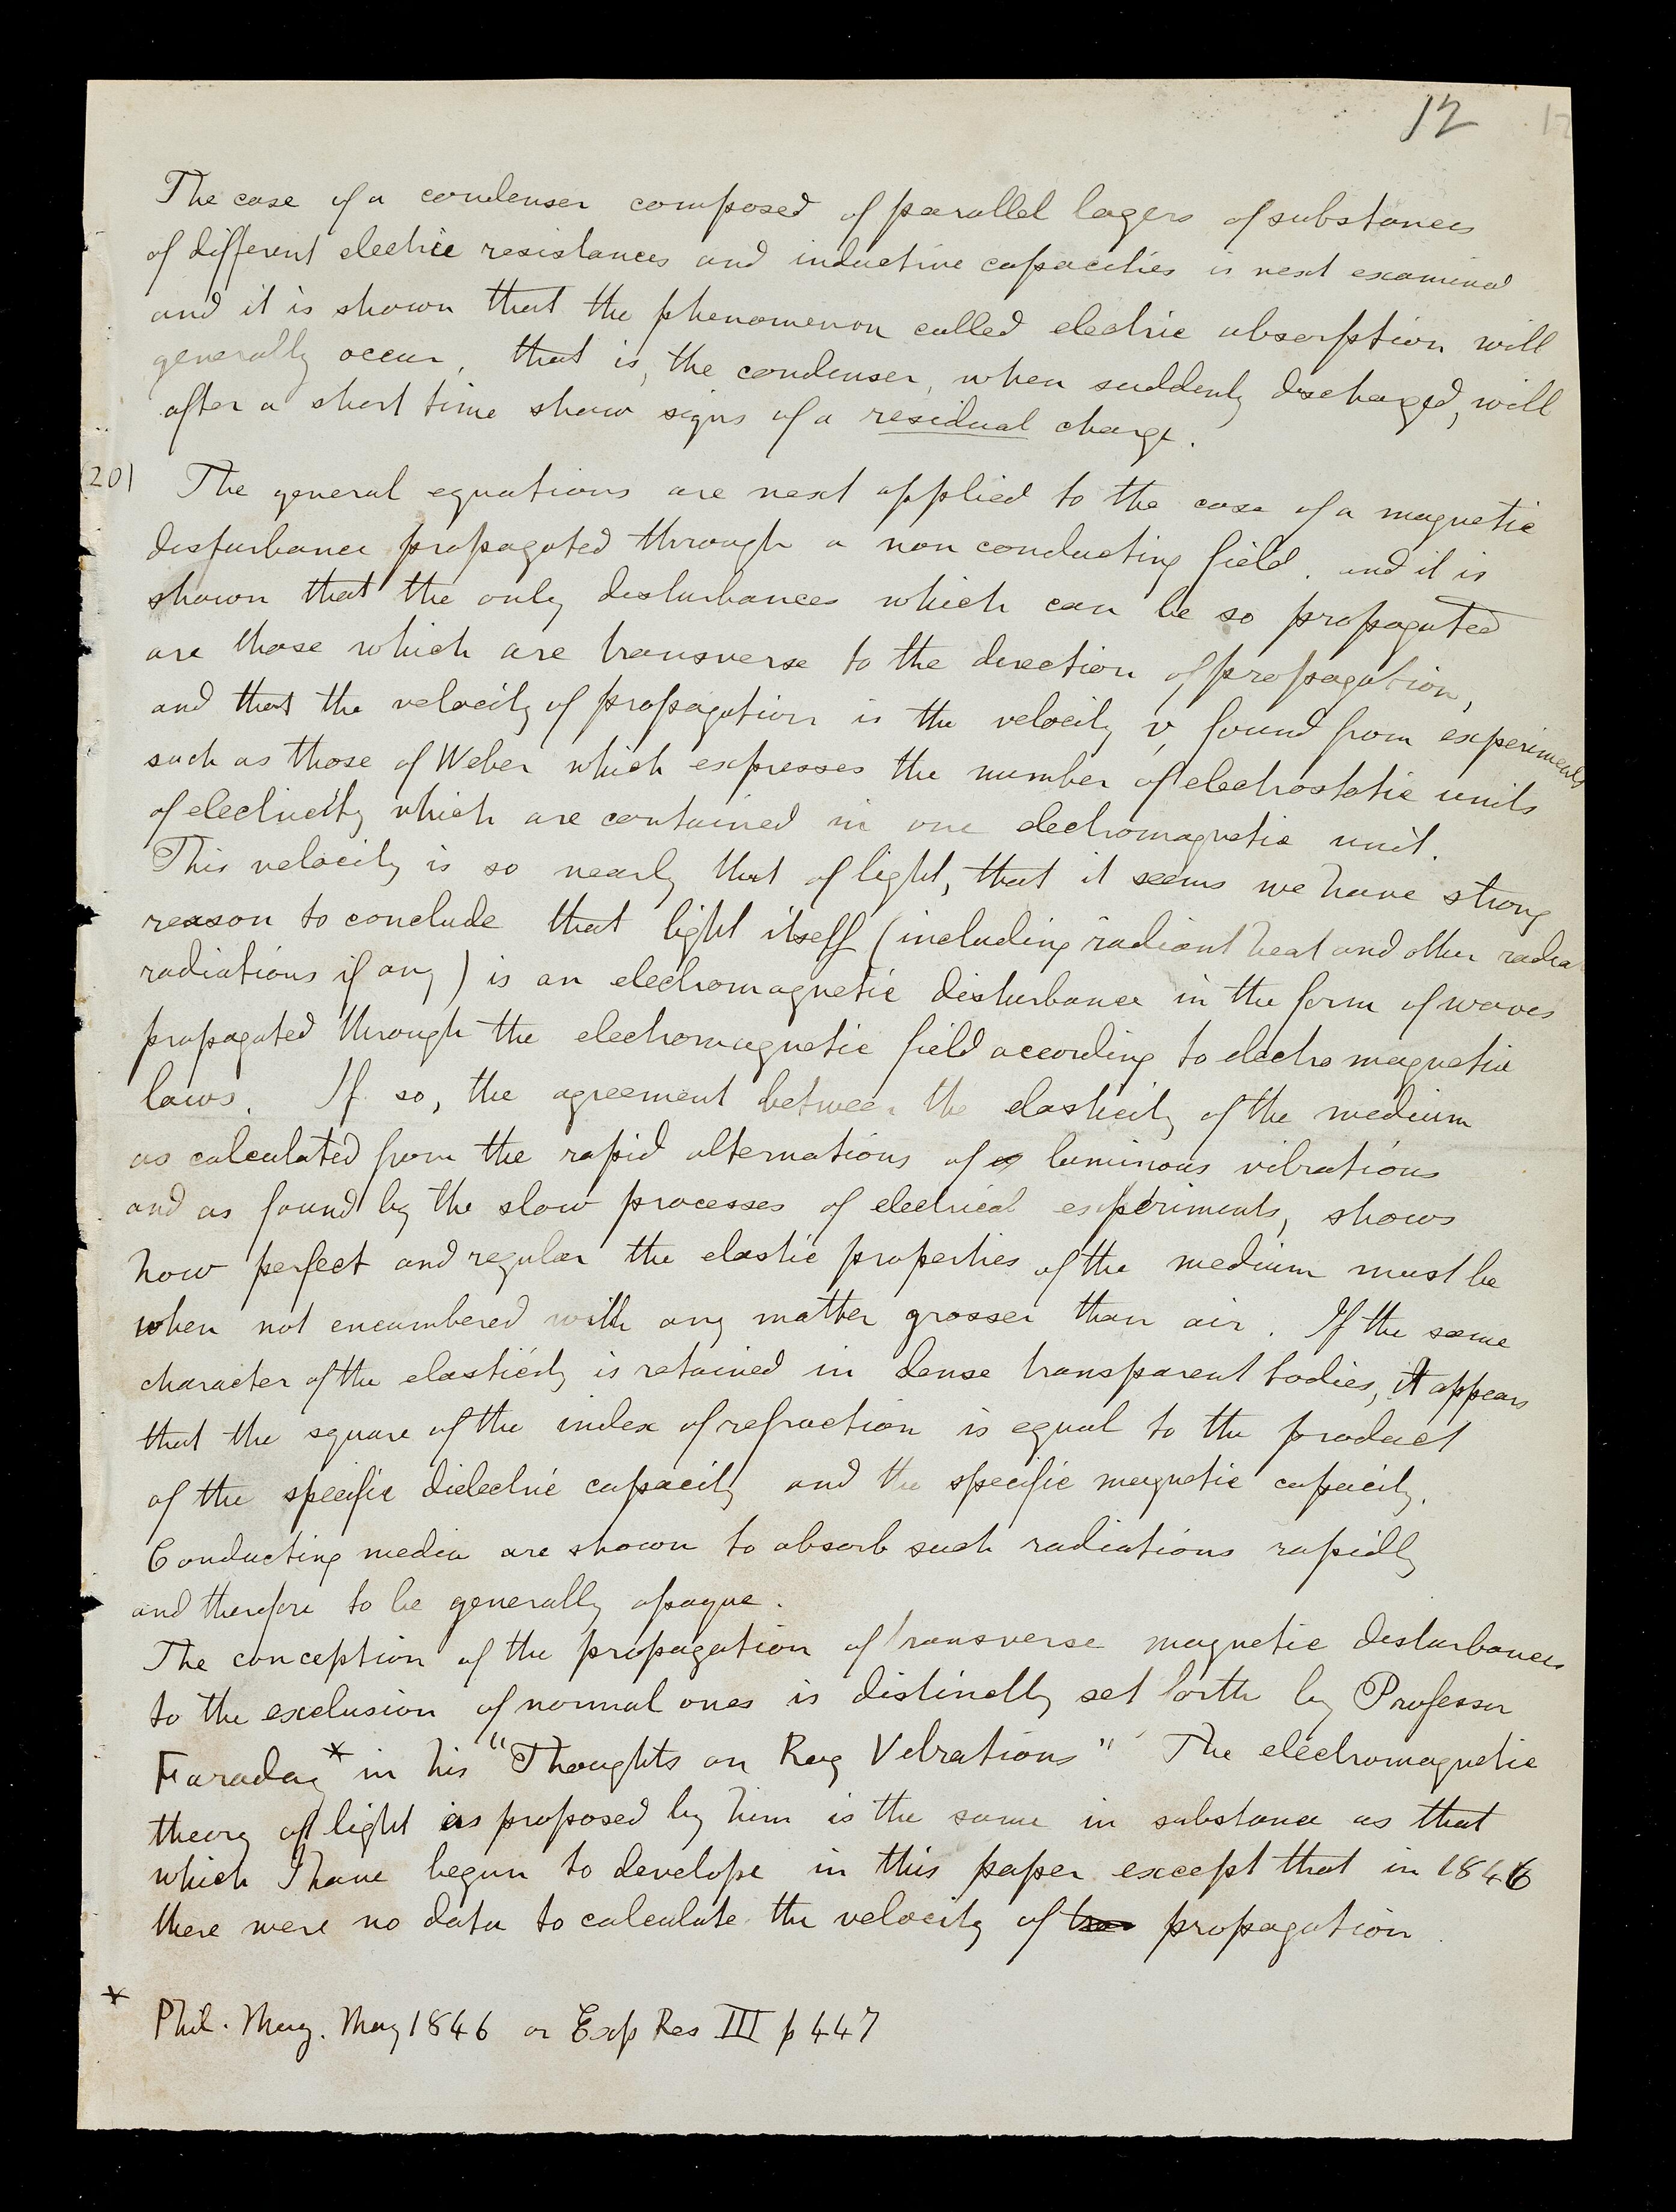 12
The case of a condenser composed of parallel layers of substances
of different electric resistances and inductive capacities is next examined
and it is shown that the phenomenon called electric absorption will
generally occur, that is, the condenser, when suddenly discharged, will
after a short time show signs of a residual charge.
(20) The general equations are next applied to the case of a magnetic
disturbance propagated through a non conducting field. and it is
shown that the only disturbances which can be so propagated
are those which are transverse to the direction of propagation,
and that the velocity of propagation is the velocity v, found from experiments
such as those of Weber which expresses the number of electrostatic units
of electricity which are contained in one electromagnetic unit.
This velocity is so nearly that of light, that it seems we have strong
reason to conclude that light itself (including radiant heat and other radia
radiations if any) is an electromagnetic disturbance in the form of waves
propagated through the electromagnetic field according to electro magnetic
laws. If so, the agreement between the elasticity of the medium
as calculated from the rapid alternations of luminous vibrations
and as found by the slow processes of electrical experiments, shows
how perfect and regular the elastic properties of the medium must be
when not encumbered with any matter grosser than air. If the same
character of the elasticity is retained in dense transparent bodies, it appears
that the square of the index of refraction is equal to the product
of the specific dielectric capacity and the specific magnetic capacity.
Conducting media are shown to absorb such radiations rapidly
and therefore to be generally opaque.
The conception of the propagation of transverse magnetic disturbances
to the exclusion of normal ones is distinctly set forth by Professor
Faraday* in his "Thoughts on Ray Vibrations" The electromagnetic
theory of light as proposed by him is the same in substance as that
which I have begun to develope in this paper except that in 1846
there were no data to calculate the velocity of propagation.
* Phil. Mag. May 1846 or Exp Res III p 447